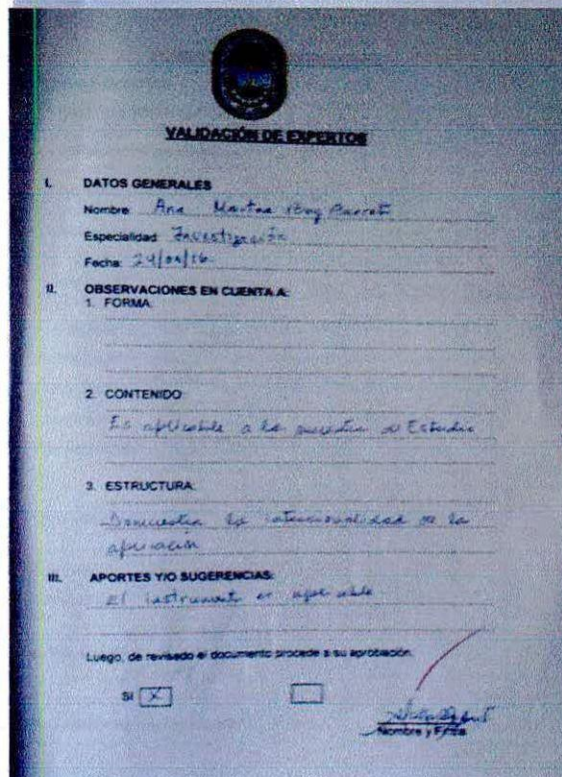 VALIDACIÓN DE EXPERTOS
I. DATOS GENERALES
Nombre: Ana Martha
Especialidad: Investigación
Fecha: 24/04/16
II. OBSERVACIONES EN CUENTA A:
1. FORMA:
2. CONTENIDO:
Es aplicable a la muestra de Estudio
3. ESTRUCTURA:
Demuestra la intencionalidad de la
III. APORTES Y/O SUGERENCIAS:
El instrumento es aplicable
Luego, de revisado el documento procede a su aprobación.
SI X
Nombre y Firma